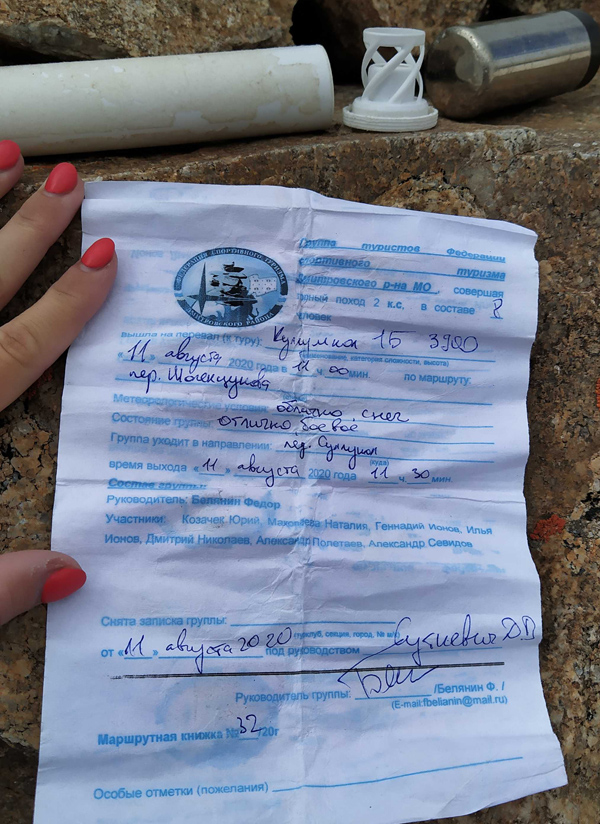 ФЕДЕРАЦИЯ СПОРТИВНОГО ТУРИЗМА
ДМИТРОВСКОГО РАЙОНА
Группа туристов Федерации
спортивного туризма
Дмитровского р-на МО, совершая
поход 2 к.с. в составе 8
человек
вышла на перевал (к туру): 1Б 3920
(наименование, категория сложности, высота)
«11» августа 2020 года в 11 ч 00 мин по маршруту:
пер.
Метеорологические условия: облачно, снег
Состояние группы: отлично, боевое
Группа уходит в направлении: лед.
(куда)
время выхода «11» августа 2020 года 11 ч. 30 мин.
Состав группы:
Руководитель: Белянин Федор
Участники: Козачек Юрий, Наталия, Геннадий Ионов, Илья
Ионов, Дмитрий Николаев, Александр Полетаев, Александр Севидов
Снята записка группы:
(турклуб, секция, город, № м/к)
от «11» августа 2020 под руководством Суткевич Д.В
Руководитель группы: /Белянин Ф. /
(E-mail:fbelianin@mail.ru)
Маршрутная книжка № 32 /20г
Особые отметки (пожелания)